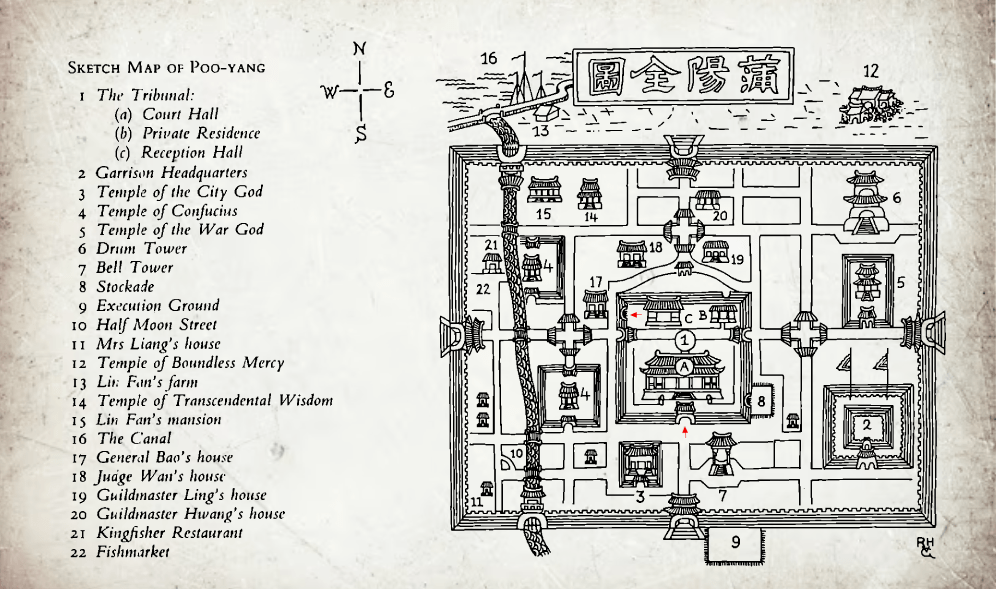 SKETCH MAP OF POO-YANG
1 The Tribunal:
(a) Court Hall
(b) Private Residence
(c) Reception Hall
2 Garrison Headquarters
3 Temple of the City God
4 Temple of Confucius
5 Temple of the War God
6 Drum Tower
7 Bell Tower
8 Stockade
9 Execution Ground
10 Half Moon Street
11 Mrs Liang's house
12 Temple of Boundless Mercy
13 Lin Fan's farm
14 Temple of Transcendental Wisdom
15 Lin Fan's mansion
16 The Canal
17 General Bao's house
18 Judge Wan's house
19 Guildmaster Ling's house
20 Guildmaster Hwang's house
21 Kingfisher Restaurant
22 Fishmarket
N
W E
S
圖全陽蒲
16
12
13
15
14
20
6
21
4
18
19
22
17
5
C B
1
A
4
8
2
10
3
7
11
9
RH